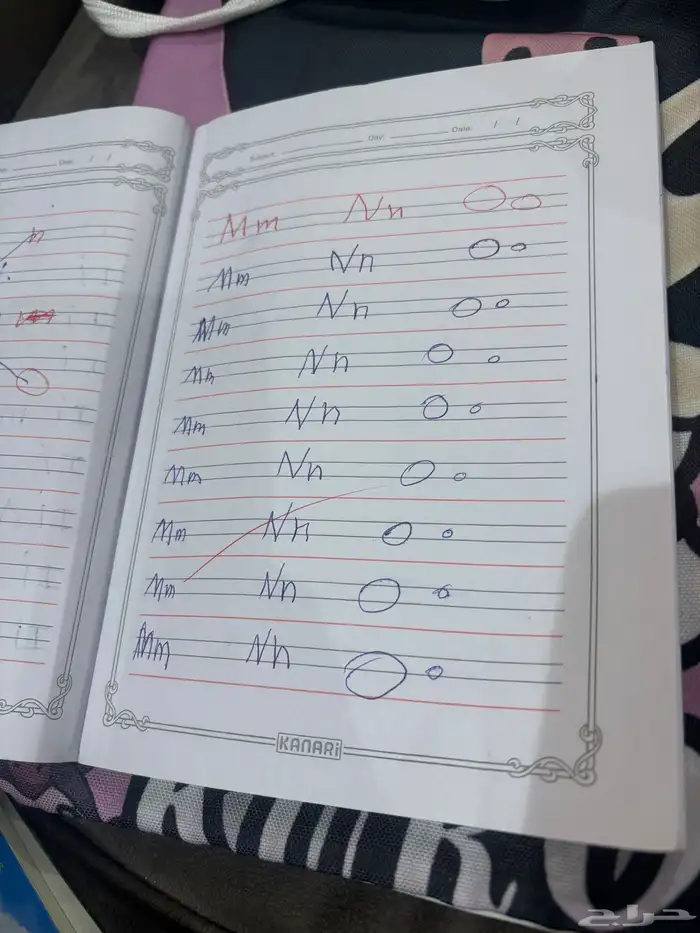 Subject: Day: Date: / /
Mm Nn Oo
Mm Nn Oo
Mm Nn Oo
Mm Nn Oo
Mm Nn Oo
Mm Nn Oo
Mm Nn Oo
Mm Nn Oo
Mm Nn Oo
KANARi
حراج